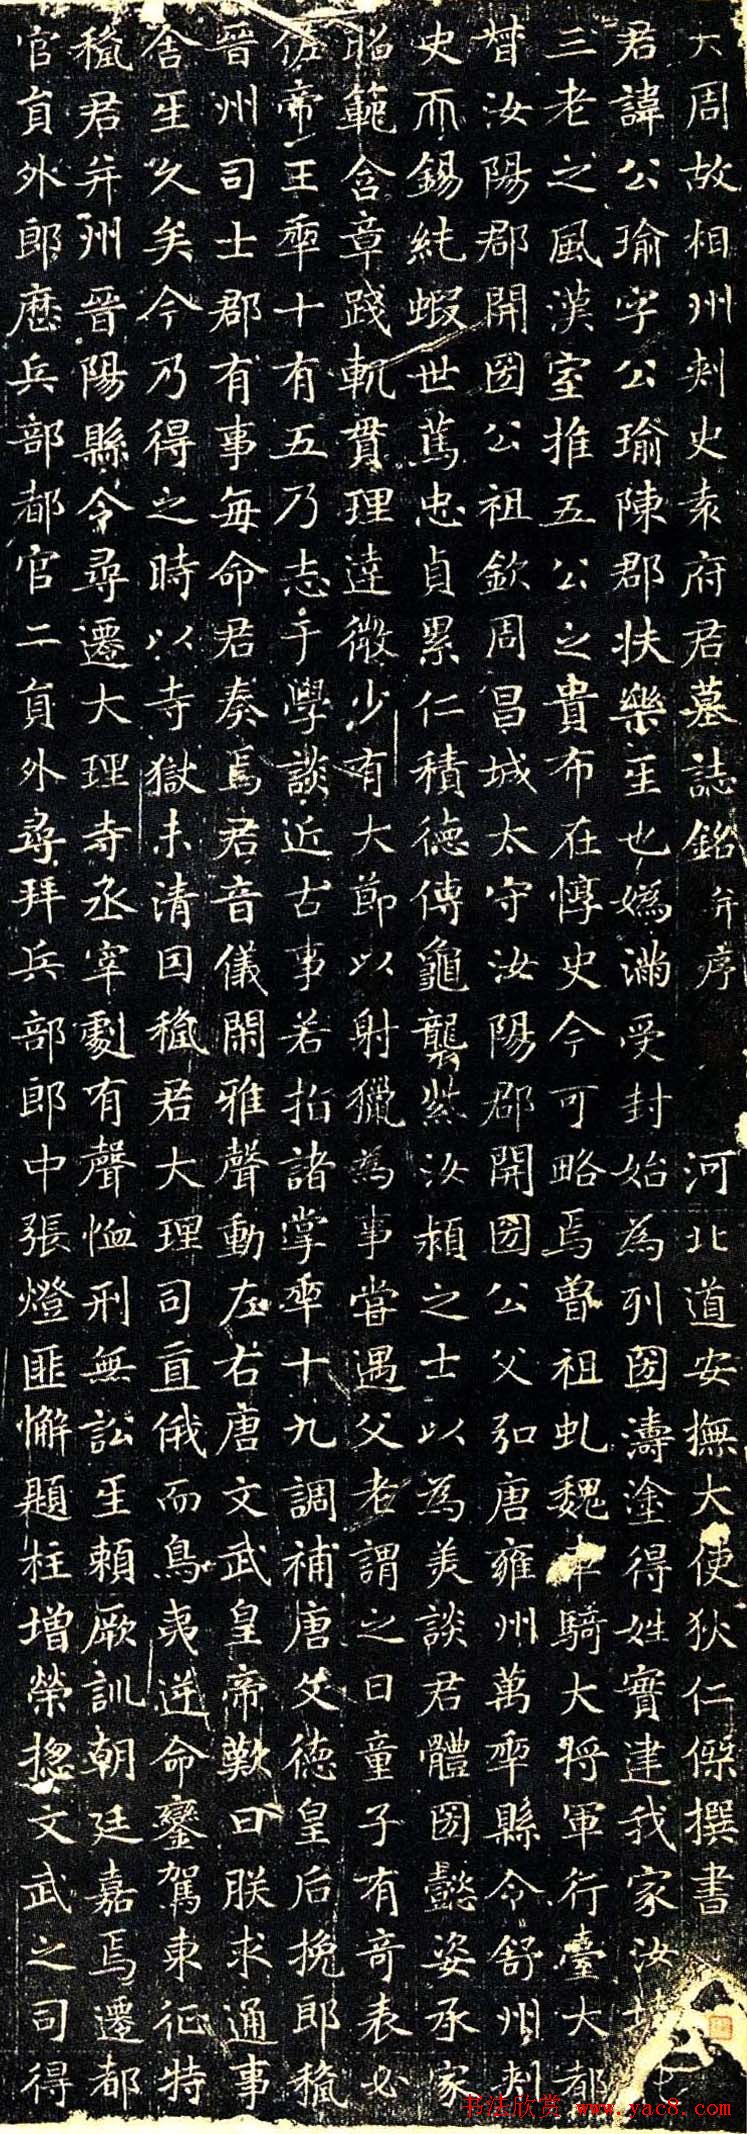 大周故相州刾史袁府君墓誌銘并序 河北道安撫大使狄仁傑撰書
君諱公瑜字公瑜陳郡扶樂𤯔也媯滿受封始為列圀濤塗得姓實建我家汝
三老之風漢室推五公之貴布在惇史今可略焉曾祖虬魏車騎大將軍行臺大都
督汝陽郡開圀公祖欽周昌城太守汝陽郡開圀公父弘唐雍州萬𠡦縣令舒州刾
史而錫純蝦世篤忠貞累仁積德傳龜襲紫汝潁之士以為美談君體圀懿姿承家
昭範含章踐軌貫理達微少有大節以射獵為事嘗遇父老謂之曰童子有奇表必
佐帝王𠡦十有五乃志于學談近古事若指諸掌𠡦十九調補唐文德皇后挽郎𥠢
晉州司士郡有事每命君奏焉君音儀閑雅聲動左右唐文武皇帝歎曰朕求通事
舍𤯔久矣今乃得之時以寺獄未清因𥠢君大理司直俄而鳥夷逆命鑾駕東征特
𥠢君并州晉陽縣令尋遷大理寺丞宰劇有聲恤刑無訟𤯔賴厥訓朝廷嘉焉遷都
官員外郎歷兵部都官二員外尋拜兵部郎中張燈匪懈題柱增榮揔文武之司得
书法欣赏 www.yac8.com